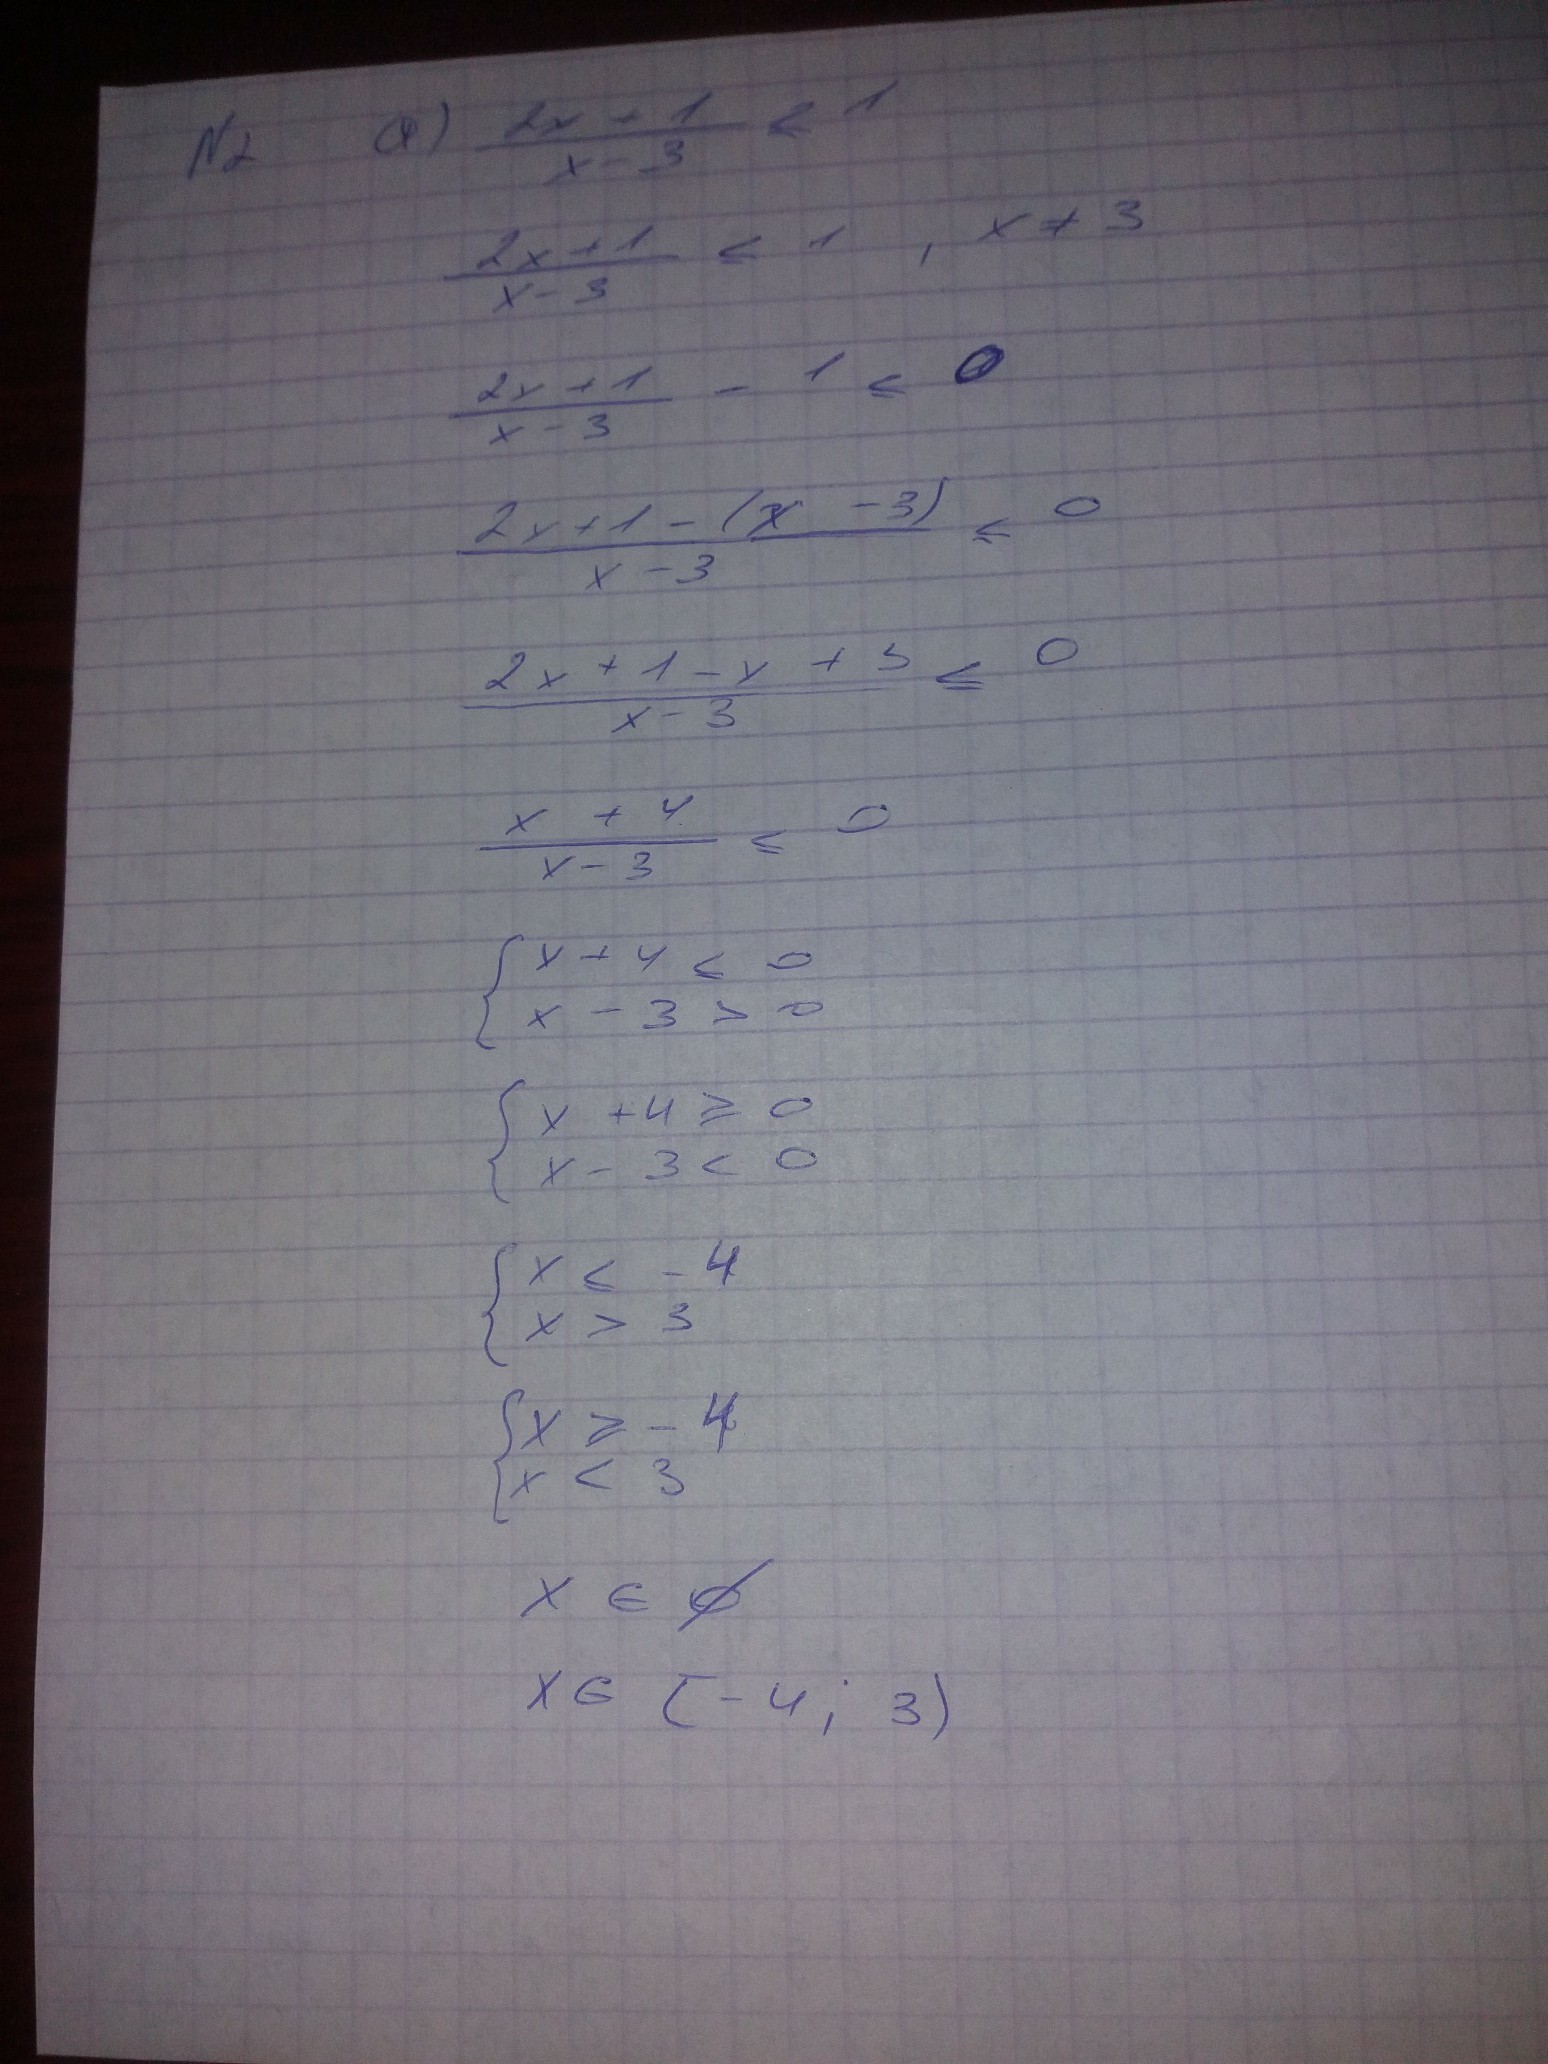 N2 а) (2x + 1)/(x - 3) ≤ 1
(2x + 1)/(x - 3) ≤ 1 , x ≠ 3
(2x + 1)/(x - 3) - 1 ≤ 0
(2x + 1 - (x - 3))/(x - 3) ≤ 0
(2x + 1 - x + 3)/(x - 3) ≤ 0
(x + 4)/(x - 3) ≤ 0
{ x + 4 ≤ 0
x - 3 > 0
{ x + 4 ≥ 0
x - 3 < 0
{ x ≤ - 4
x > 3
{ x ≥ - 4
x < 3
x ∈ ∅
x ∈ [-4; 3)